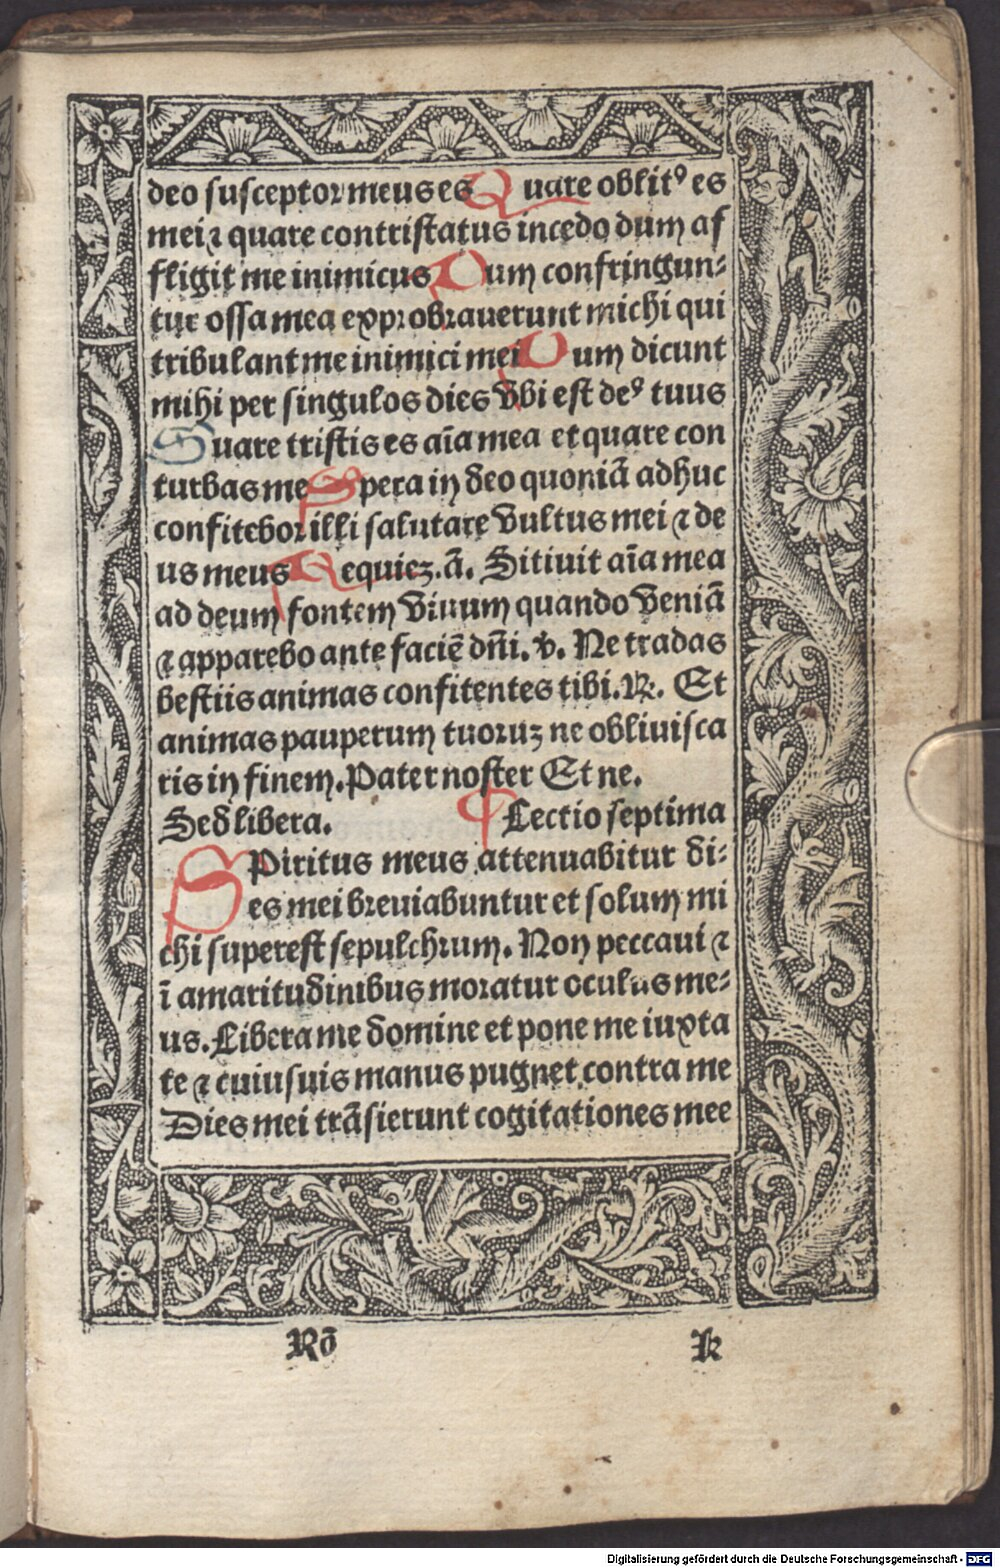 deo susceptor meus es Quare oblitꝰ es
mei ⁊ quare contristatus incedo dum af
fligit me inimicus Dum confringun⸗
tur ossa mea exprobrauerunt michi qui
tribulant me inimici mei Dum dicunt
mihi per singulos dies vbi est deꝰ tuus
Quare tristis es aīa mea et quare con
turbas me Spera in deo quoniā adhuc
confitebor illi salutare vultus mei ⁊ de
us meus Requiez.ā. Sitiuit aīa mea
ad deum fontem viuum quando veniā
⁊ apparebo ante faciē dñi. ꝟ. Ne tradas
bestiis animas confitentes tibi. ℞. Et
animas pauperum tuoruz ne obliuisca
ris in finem. Pater noster Et ne.
Sed libera. ¶ Lectio septima
SPiritus meus attenuabitur di⸗
es mei breuiabuntur et solum mi
chi superest sepulchrum. Non peccaui ⁊
ī amaritudinibus moratur oculus me⸗
us. Libera me domine et pone me iuxta
te ⁊ cuiusuis manus pugnet contra me
Dies mei trāsierunt cogitationes mee
Rō k
Digitalisierung gefördert durch die Deutsche Forschungsgemeinschaft - DFG